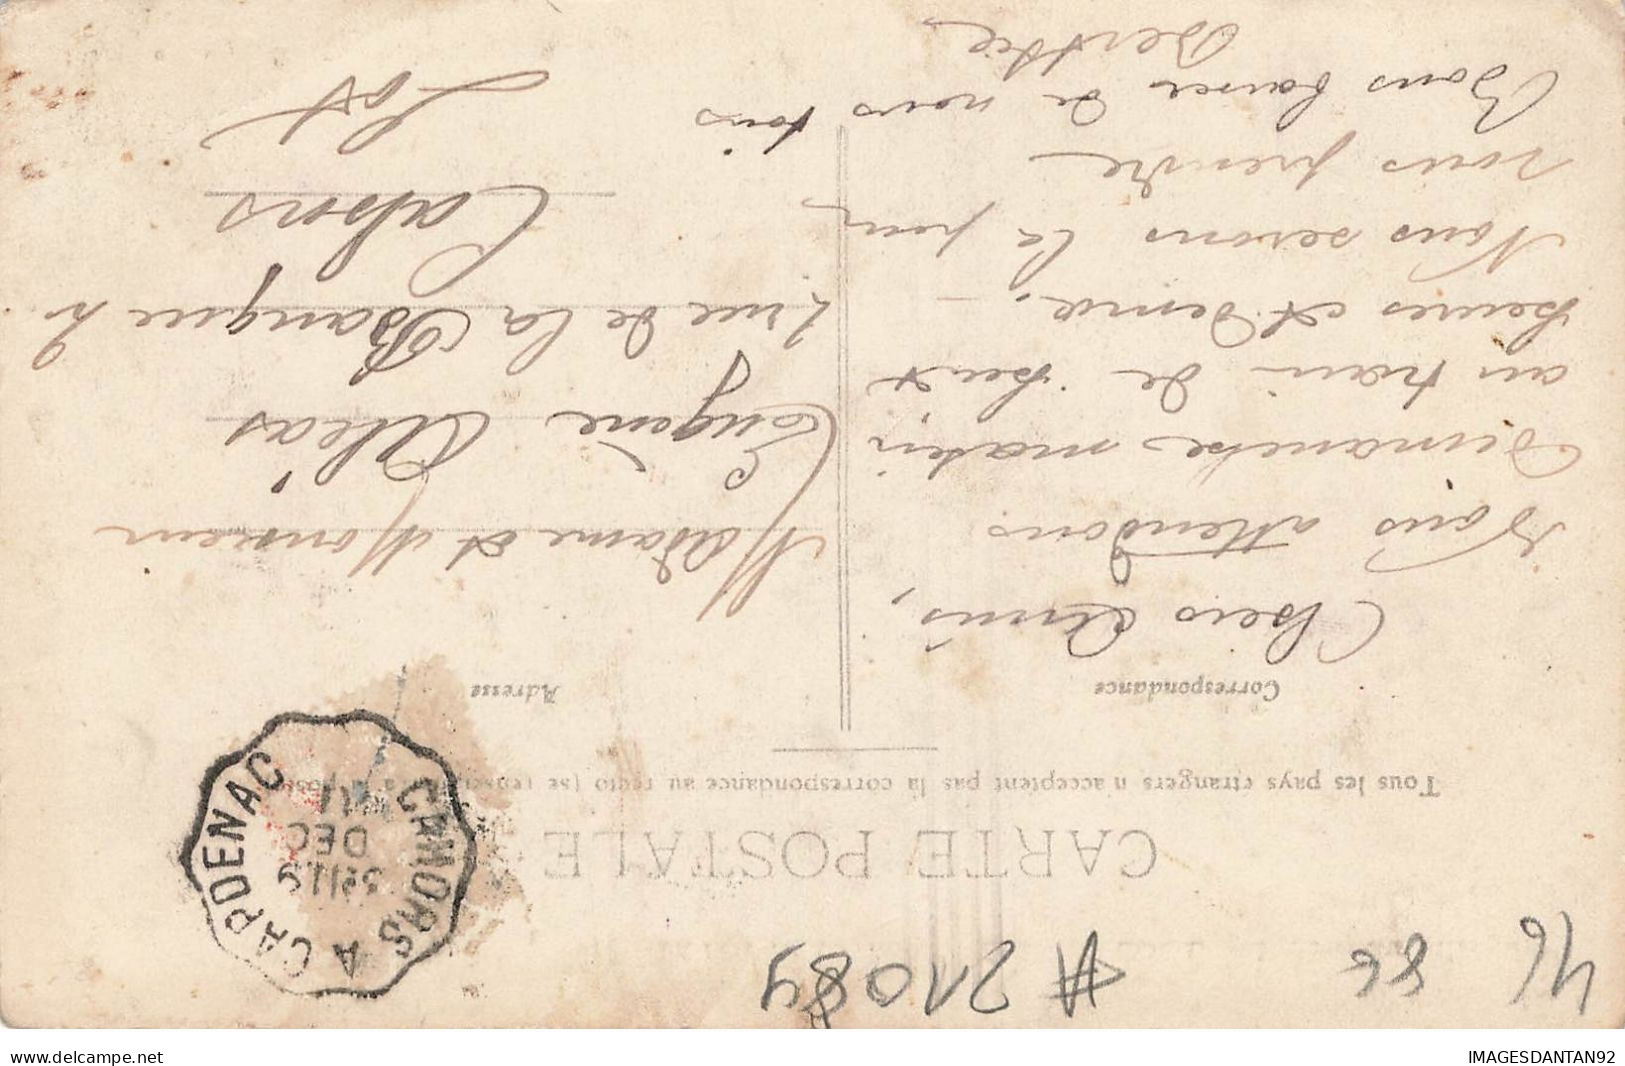 CARTE POSTALE
Tous les pays étrangers n'acceptent pas la correspondance au recto (se renseigner à la poste)
Correspondance
Adresse
Chers Amis,
Vous attendons
Dimanche matin
au train de huit
heures et demie. –
Nous serons là pour
vous prendre
Bons baisers de nous tous
Berthe
Madame et Monsieur
Eugène Aléas
2 rue de la Banque 2
Cahors
Lot
CAHORS A CAPDENAC
DEC
11
46
86
# 21089
delcampe.net
IMAGESDANTAN92